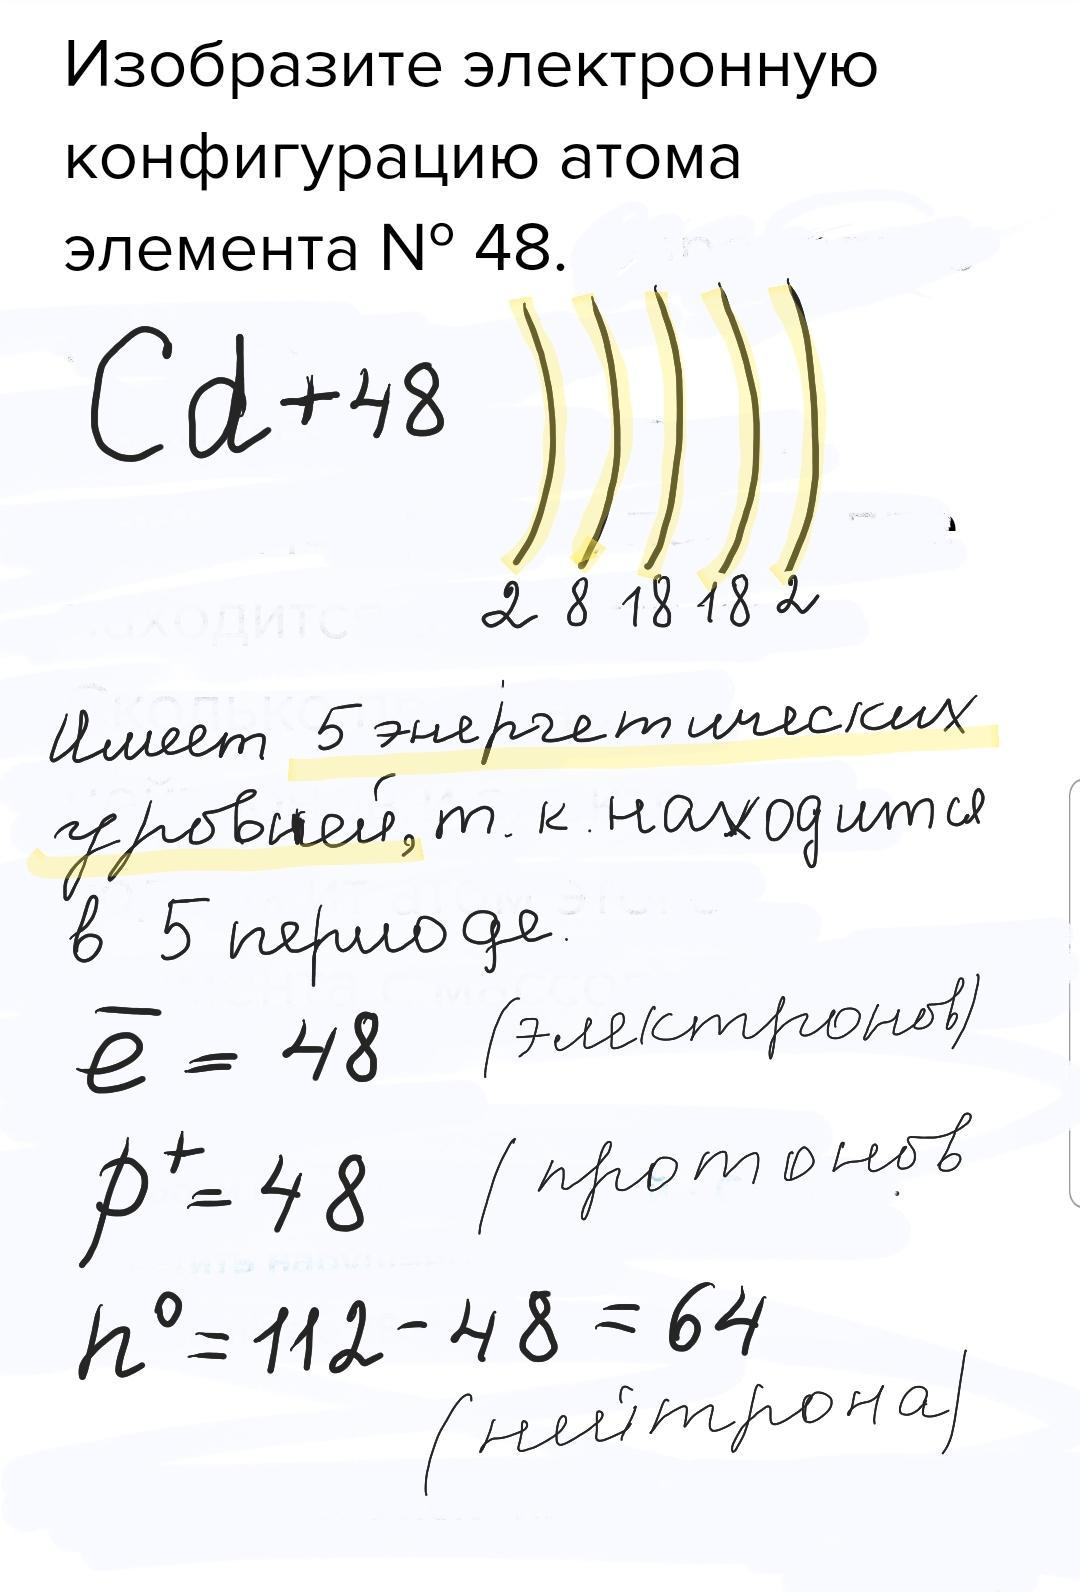 Изобразите электронную
конфигурацию атома
элемента № 48.
Cd+48
2 8 18 18 2
Имеет 5 энергетических
уровней, т. к. находится
в 5 периоде.
e̅ = 48 (электронов)
p⁺ = 48 (протонов
n⁰ = 112 - 48 = 64
(нейтрона)